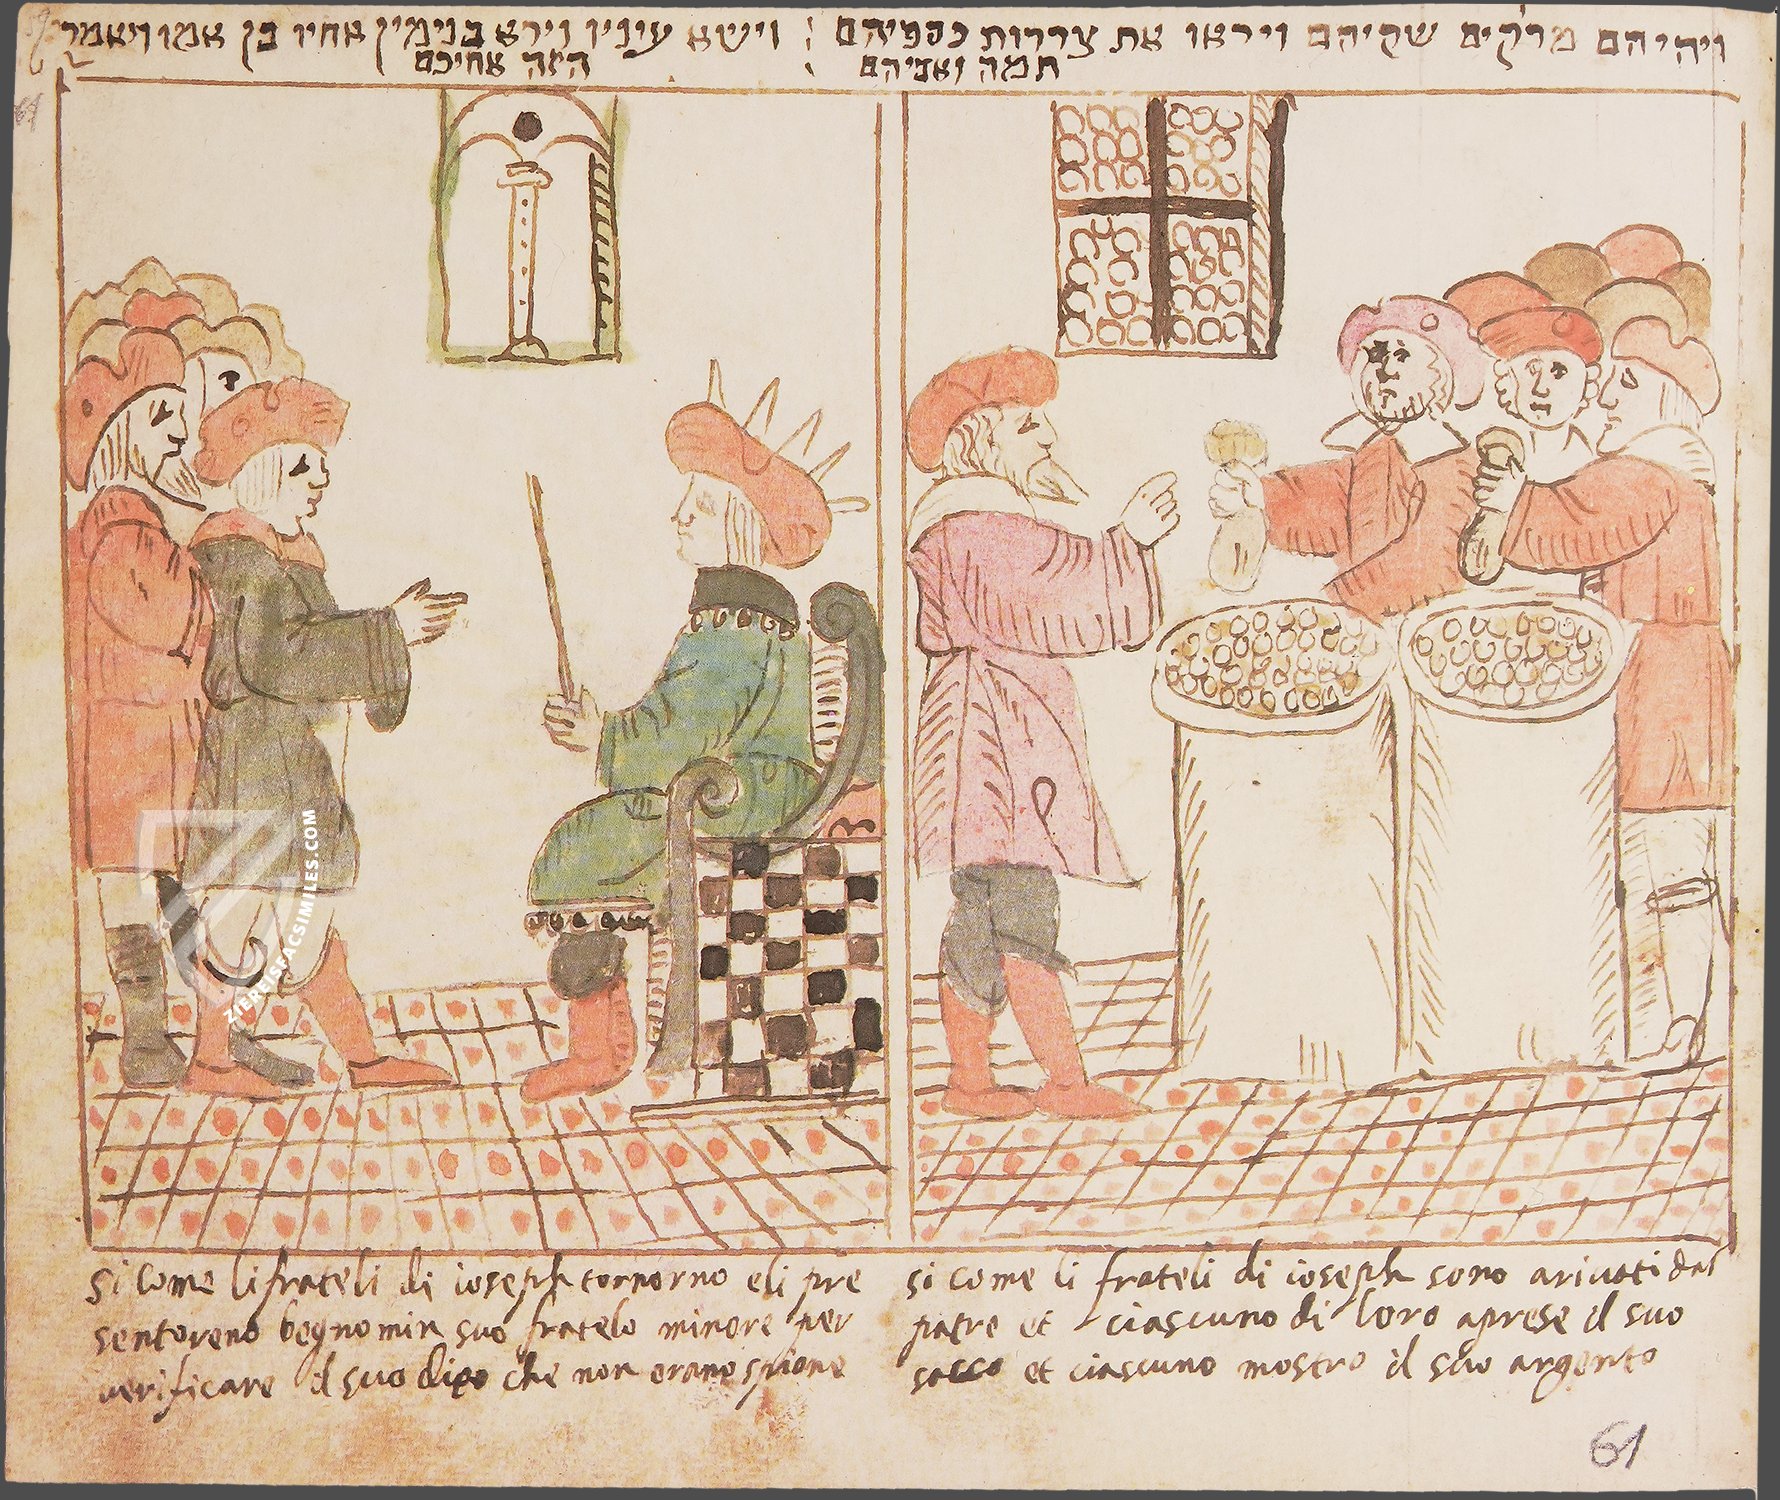 ויהי הם מרקים שקיהם ויראו את צררות כספיהם
המה ואביהם
וישא עיניו וירא בנימין אחיו בן אמו ויאמר
הזה אחיכם
61
si come li frateli di ioseph tornorno eli pre
sentoreno begnomin suo fratelo minore per
verificare il suo dito che non erano spione
si come li frateli di ioseph sono arivati dal
patre et ciascuno di loro aprese il suo
sacco et ciascuno mostro il suo argento
61
ZIEREISFACSIMILES.COM